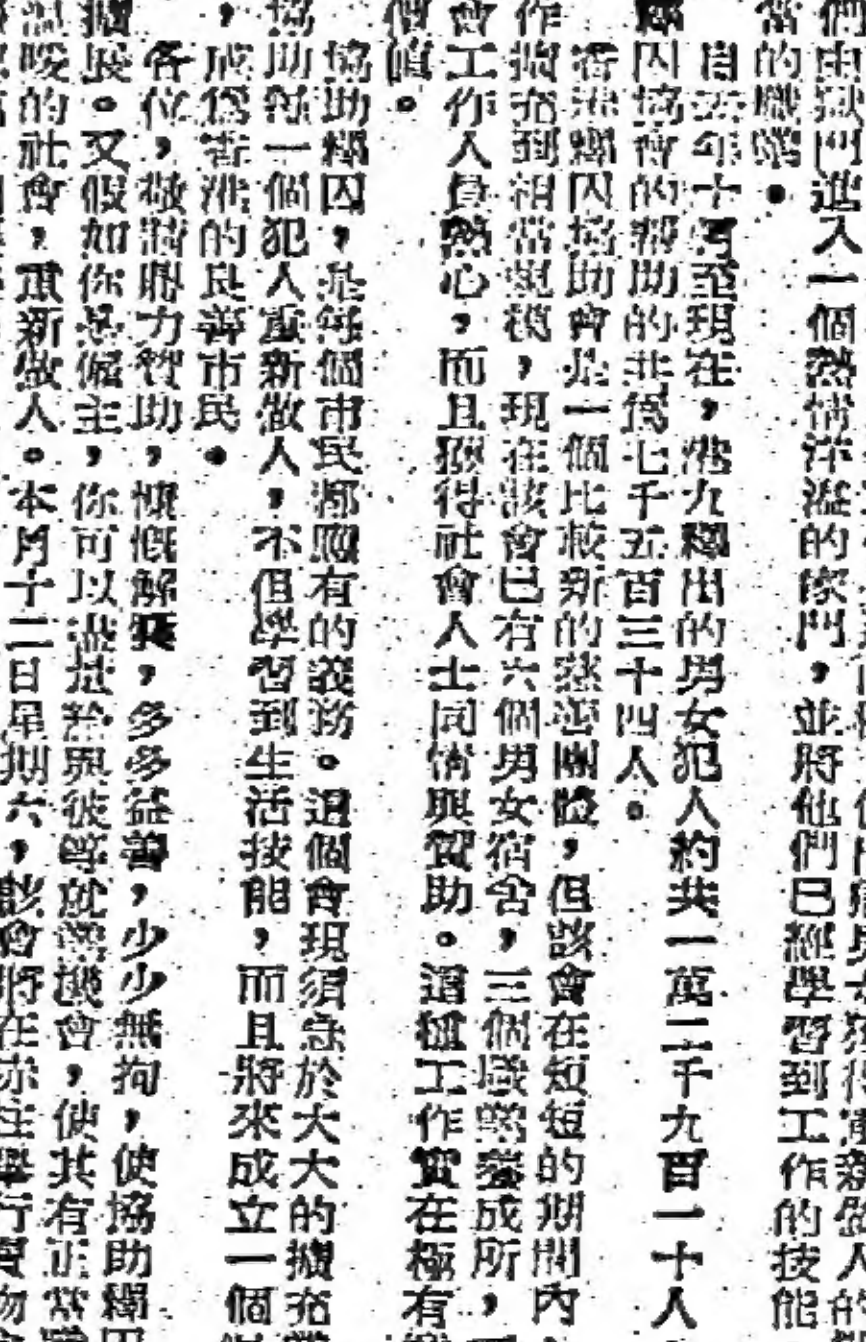 們由獄門進入一個熱情洋溢的家門，並將他們已經學習到工作的技能
當的職業。
自去年十月至現在，港九釋出的男女犯人約共一萬二千九百一十人
釋囚協會的幫助的共爲七千五百三十四人。
香港釋囚協助會是一個比較新的慈善團體，但該會在短短的期間內
作擴充到相當規模，現在該會已有六個男女宿舍，三個職業養成所，
會工作人員熱心，而且獲得社會人士同情與贊助。這種工作實在極有
價值。
協助釋囚，是每個市民都應有的義務。這個會現須急於大大的擴充
協助每一個犯人重新做人，不但學習到生活技能，而且將來成立一個
，成爲香港的良善市民。
各位，敬請鼎力贊助，慷慨解囊，多多益善，少少無拘，使協助釋囚
擴展。又假如你是僱主，你可以盡量給與彼等就業機會，使其有正常
溫暖的社會，重新做人。本月十二日星期六，該會將在赤柱舉行賣物